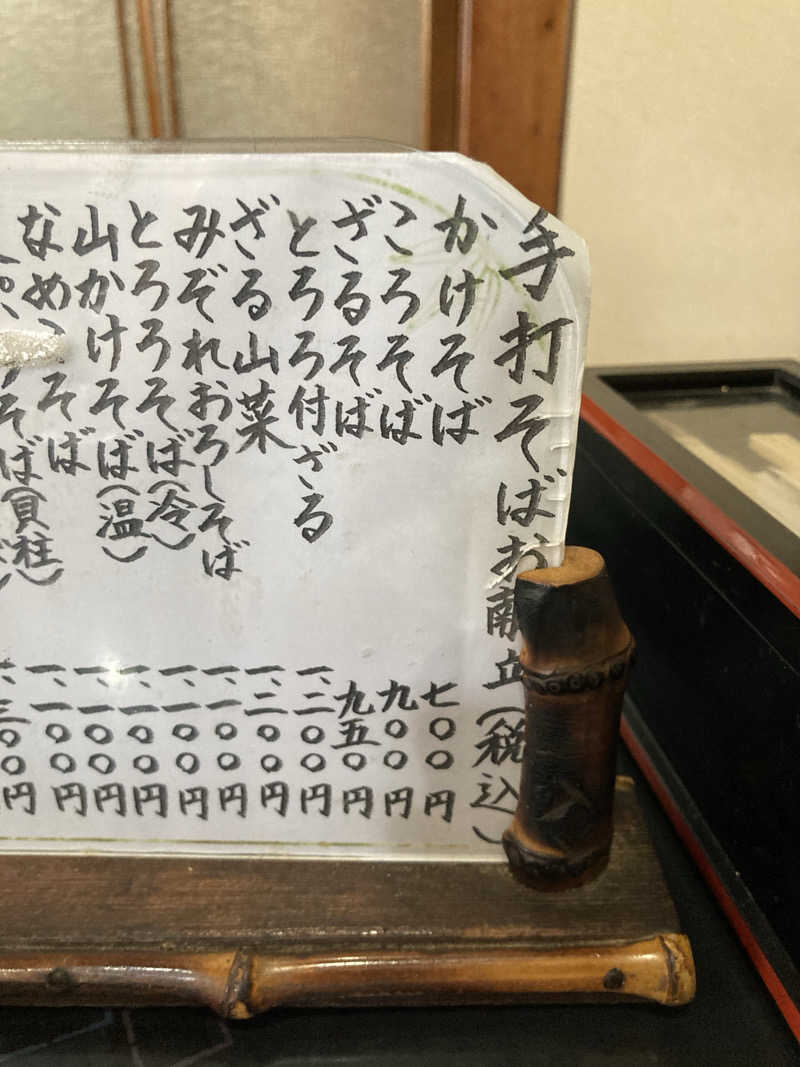 手打そばお献立(税込)
かけそば
ころそば
ざるそば
とろろ付ざる
ざる山菜
みぞれおろしそば
とろろそば(冷)
山かけそば(温)
なめこそば
そば(貝柱)
七〇〇円
九〇〇円
九五〇円
一、二〇〇円
一、二〇〇円
一、一〇〇円
一、一〇〇円
一、一〇〇円
一、一〇〇円
一、一〇〇円
一、三〇〇円